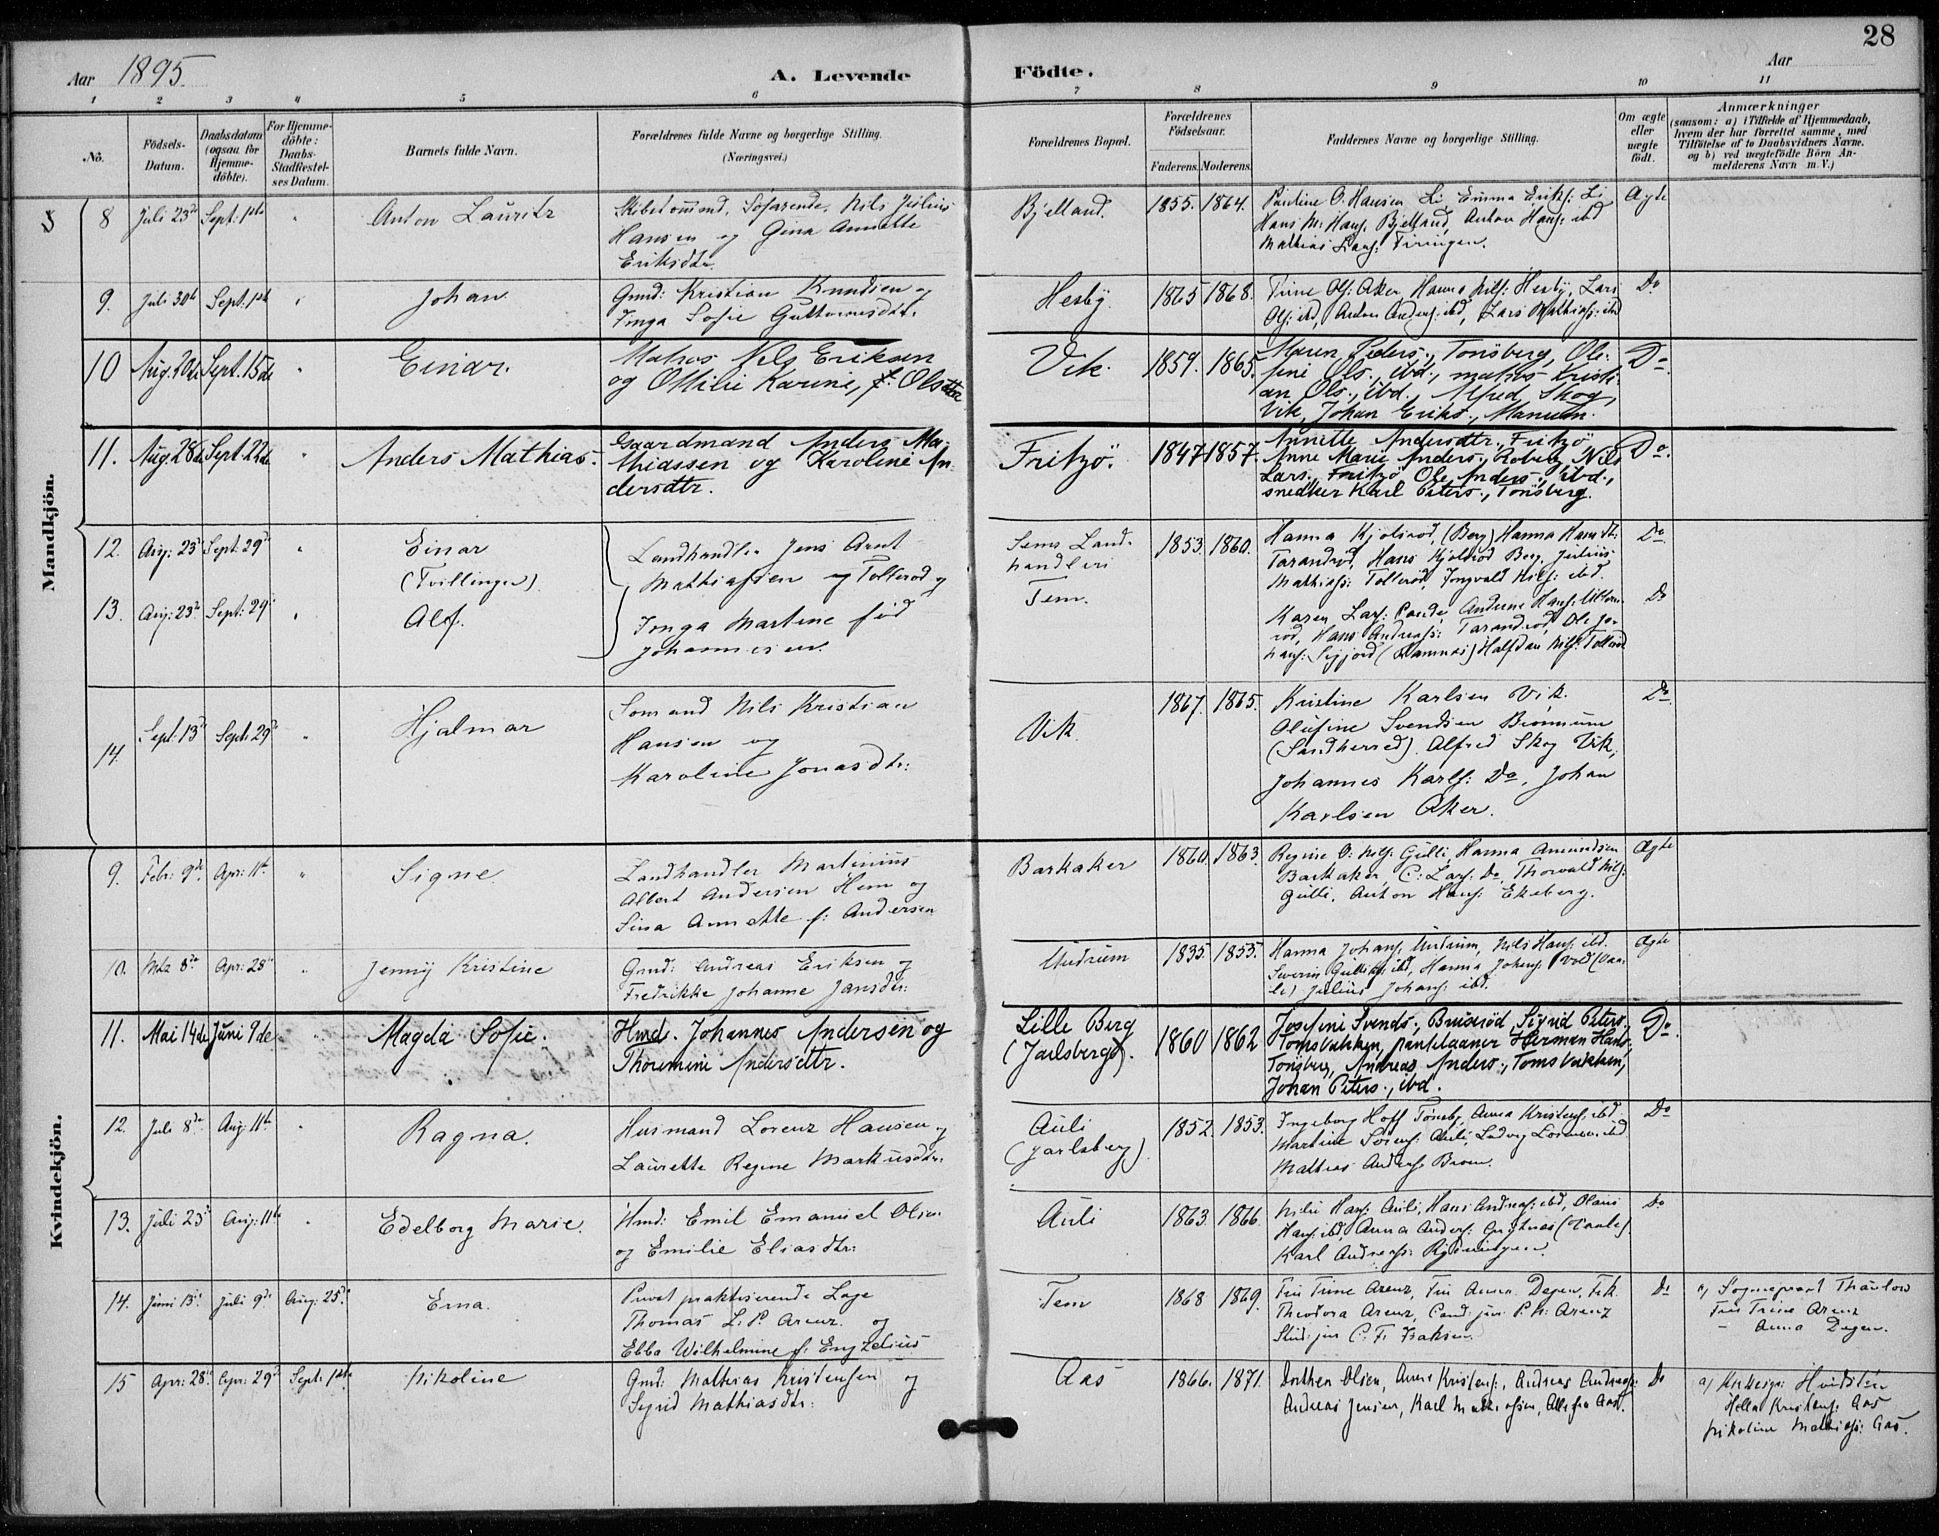 28
Aar 1895.
A. Levende Födte.
Aar
1 2 3 4 5 6 7 8 9 10 11
No.
Födsels-Datum.
Daabsdatum (ogsaa for Hjemme-döbte).
For Hjemme-döbte: Daabs-Stadfæstel-ses Datum.
Barnets fulde Navn.
Forældrenes fulde Navne og borgerlige Stilling.
(Næringsvei.)
Forældrenes Bopæl.
Forældrenes Födselsaar.
Faderens. Moderens.
Faddernes Navne og borgerlige Stilling.
Om ægte eller uægte födt.
Anmærkninger
(saasom: a) i Tilfælde af Hjemmedaab,
hvem der har forrettet samme, med
Tilföielse af to Daabsvidners Navne.
og b) ved uægtefödte Börn An-
melderens Navn m.V.)
Mandkjön.
8 Juli 23de Sept. 1ste " Anton Lauritz
Hansen og Gina Annette
Eriksdtr.
Bjelland. 1855. 1864.
Pauline O. Hansen Li, Emma Eriks: Li
Hans M: Hans. Bjelland, Anton Hans: ibd
Ægte
9. Juli 30te Sept. 1ste " Johan
Gmd: Kristian Knudsen og
Inga Sofie Guttormsdtr.
Hesby. 1865 1868.
Trine Ols: Aker Hanna Nils: Hesby, Lars
Ols: ibd, Anton Anders: ibd, Lars Mathias: ibd
Do
10 Aug. 20de Sept. 15de " Einar.
Matros Nils Eriksen
og Ottilie Karine, f. Olsdtter
Vik. 1859. 1865.
Maren Peders., Tönsberg, Ole-
fine Ols., ibd., matros Kristi-
an Ols., ibd., Alfred Skog,
Vik, Johan Eriks.,
Do
11. Aug. 28de Sept. 22de " Anders Mathias.
Gaardmand Anders Ma-
thiassen og Karoline An-
dersdtr.
Fritzö. 1847 1857.
Annette Andersdtr., Fritzö
Anne Marie Anders., Nils
Lars., Fritzö Ole Anders., ibd.,
snedker Karl Peters., Tönsberg.
Do.
12. Aug: 23de Sept: 29de " Einar
(Tvillinger)
13. Aug: 23de Sept: 29de " Alf.
Landhandler Jens Arnt
Mathiassen og Tollerød og
Inga Martine född
Johannesen.
Sems Land-
handleri
Tem.
1853. 1860.
Tarandrød, Hans Kjolsrød Berg, Julius
Mathias: Tollerød, Ingvald Nils: ibd.
Do
rød, Hans Andreas: Tarandrød, Ole Jo-
(Ramnes) Halfdan Nils: Tollerød
Do
14. Sept. 13de Sept: 29de " Hjalmar
Sömand Nils Kristian
Hansen og
Karoline Jonasdtr:
Vik. 1867. 1865.
Kristine Karlsen Vik.
Olufine Svendsen
(Sandherred). Alfred Skog Vik,
Johannes Karls: Do, Johan
Karlsen Aker.
Do
Kvindekjön.
9. Febr: 9de Apr: 11te " Signe.
Landhandler Martinius
Albert Andersen Hem og
Sina Annette f: Andersen
Barkaker 1860. 1863.
Regine O: Nils: Gulli, Hanna Amundsen
Barkaker, C: Lars: Do, Thorvald Nils:
Gulli, Anton Hans: Ekeberg.
Ægte
10. Mts 8de Apr: 28de " Jenny Kristine
Gmd: Andreas Eriksen og
Fredrikke Johanne Jansdtr:
Undrum 1835. 1853.
Hanna Johans: Undrum, Nils Hans: ibd.
Julius Johans: ibd.
Ægte
11. Mai 14de Juni 9de " Magda Sofie.
Hmd. Johannes Andersen og
Thoremine Andersdtr.
Lille Berg
(Jarlsberg).
1860 1862
Josefine Svends., Sigrid Peters.,
Tomsbakken, pantelaaner Herman Hans.,
Tönsberg, Andreas Anders., Tomsbakken,
Johan Peters., ibd.
Do.
12. Juli 8de Aug: 11te " Ragna.
Husmand Lorenz Hansen og
Laurette Regine Markusdtr.
Auli
(Jarlsberg).
1852. 1853.
Ingeborg Hoff Tönsbg, Anna Kristens: ibd
Martine Sörens: Auli, Ludvig Lorensen ibd
Mathias Anders:
Do
13. Juli 23de Aug: 11te " Edelborg Marie.
Hmd: Emil Emanuel Olsen
og Emilie Eliasdtr:
Auli 1863 1866.
Nils Hans: Auli, Hans Andreas: ibd, Olaus
Hans: ibd, Anna Anders:
Karl Andreas:
Do
14. Juni 13de Juli 9de Aug: 25de Erna.
Privat praktiserende Læge
Thomas L. P. Arenz. og
Ebba Wilhelmine f: Engzelius
Tem 1868 1869.
Fru Trine Arenz, Fru Anna Degen, Frk.
Theodora Arenz, Cand: jur: P. H: Arenz
Stud: jur C. F. Isaksen
Do
a) Sognepræst Thaulow
Fru Trine Arenz
" Anna Degen.
15 Apr: 28de Apr: 29de Sept: 1ste Nikoline
Gmd: Mathias Kristensen og
Sigrid Mathiasdtr:
Aas 1866. 1871.
Dorthea Olsen, Anne Kristens:, Andreas Andreas:
Andreas Jensen, Karl Mathiassen, Alle fra Aas.
Do
Helle Kristens: Aas
Nikoline Mathias: Aas.